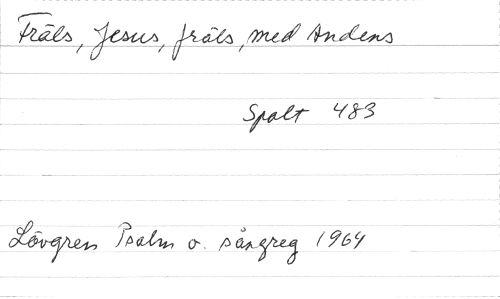 Fräls, Jesus, fräls, med Andens
Spalt 483
Lövgren Psalm o. sångreg 1964